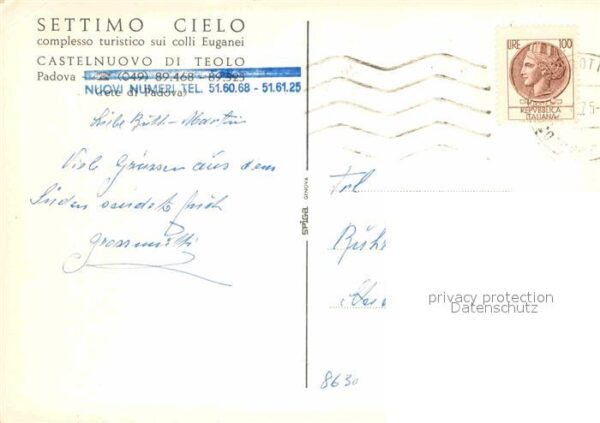 SETTIMO CIELO
complesso turistico sui colli Euganei
CASTELNUOVO DI TEOLO
Padova - ☎ (049) 89.468 - 89.525
NUOVI NUMERI TEL. 51.60.68 - 51.61.25
(rete di Padova)
Liebe Ruth-Martin
Viele Grüssen aus dem
Süden sendet Euch
Grossmutti
spiga GENOVA
LIRE 100
REPVBBLICA
ITALIANA
75
Frl
8630
privacy protection
Datenschutz